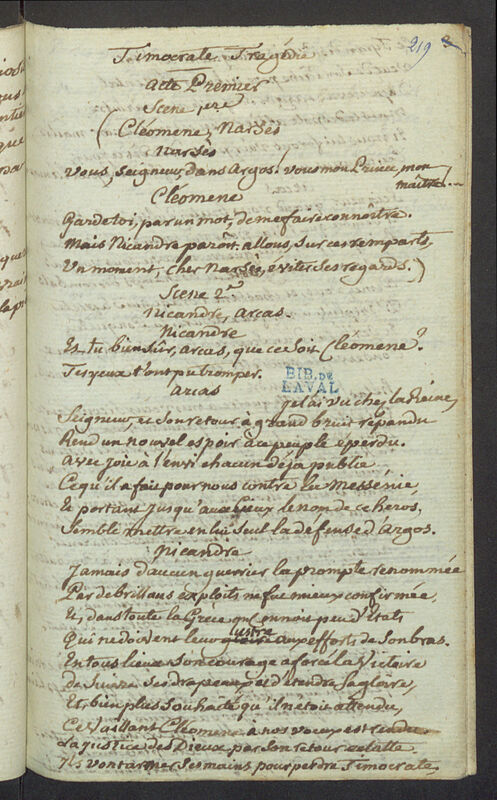 219
Timocrate Tragédie
Acte Premier
Scene 1.re
(Cléomene, Narsès
Narsès
Vous, Seigneur, dans Argos! vous mon Prince, mon
maître!...
Cléomene
Garde toi, par un mot, de me faire connoître.
Mais Nicandre paroît: allons, sur ces remparts,
Un moment, cher Narsès, éviter ses regards.)
Scene 2.e
Nicandre, Arcas.
Nicandre
Es tu bien sûr, Arcas, que ce soit Cléomene?
Tes yeux t'ont pu tromper.
BIB. DE
LAVAL
Arcas
Je l'ai vu chez la Reine,
Seigneur, et son retour à grand bruit répandu
Rend un nouvel espoir à ce peuple éperdu.
Avec joie à l'envi chacun déja publie
Ce qu'il a fait pour nous contre la Messénie,
Et portant jusqu'aux Cieux le nom de ce heros,
Semble mettre en lui seul la defense d'Argos.
Nicandre
Jamais d'aucun guerrier la prompte renommée
Par de brillans exploits ne fut mieux confirmée,
Et, dans toute la Grèce on connois peu d'états
Qui ne doivent leur lustre aux efforts de son bras.
En tous lieux son courage a forcé la Victoire
De suivre ses drapeaux et d'étendre sa gloire,
Et, bien plus souhaité qu'il n'étoit attendu,
Ce vaillant Cléomene à nos voeux est rendu.
La justice des Dieux par son retour éclatte
Ils vont armer ses mains pour perdre Timocrate,